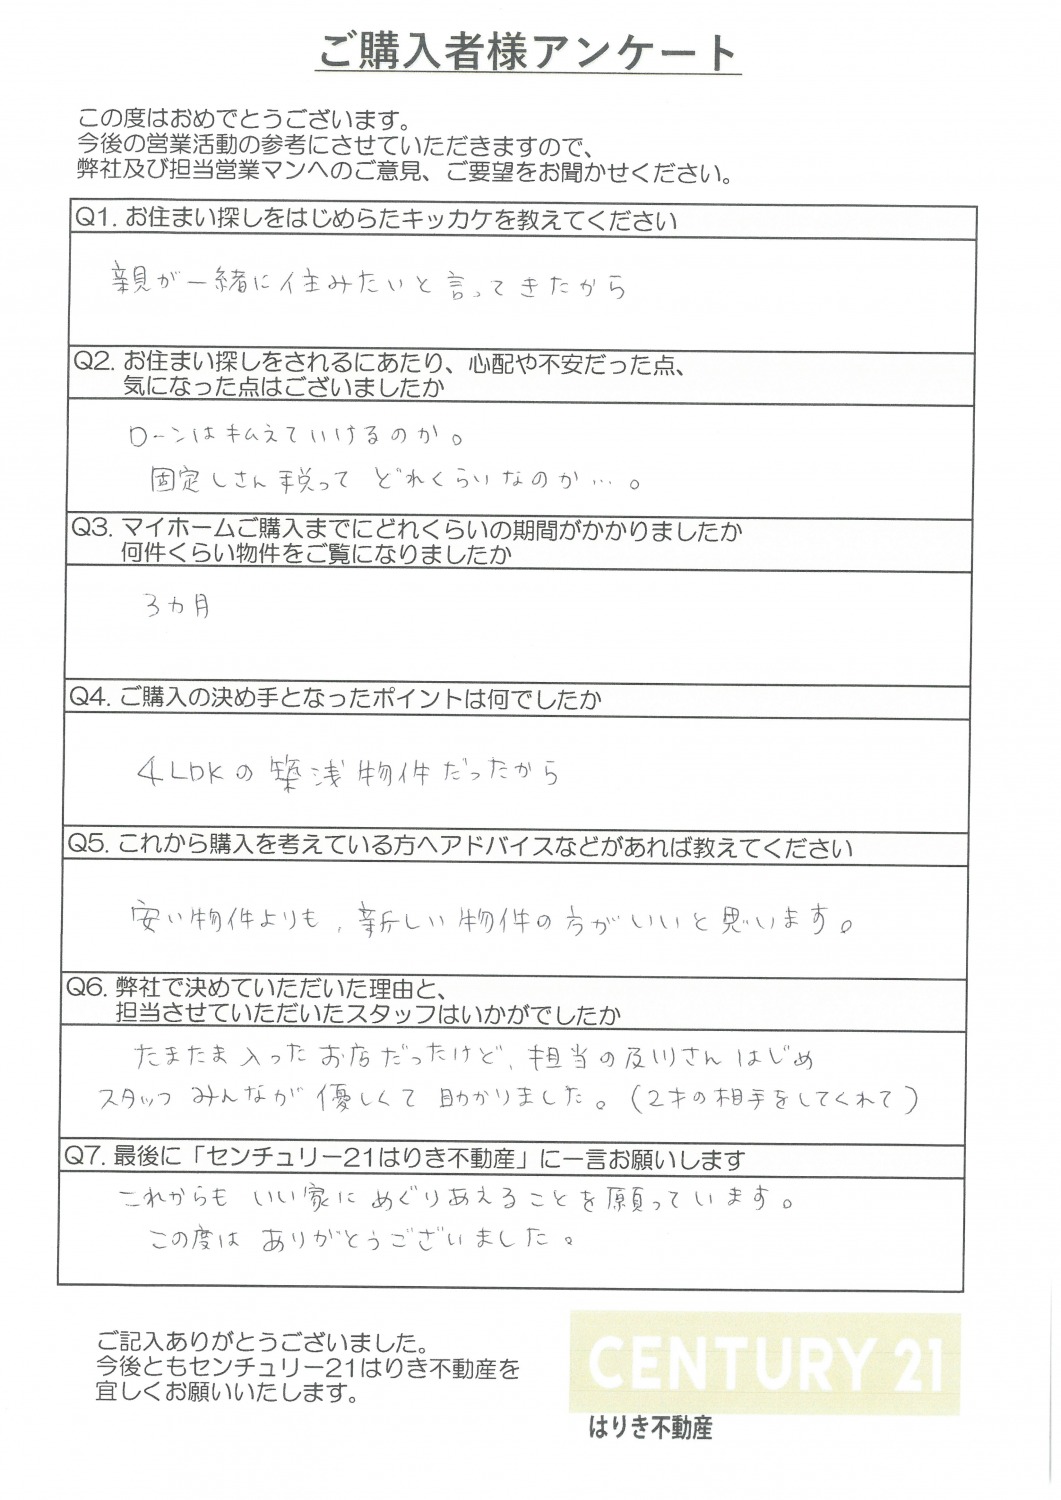 ご購入者様アンケート
この度はおめでとうございます。
今後の営業活動の参考にさせていただきますので、
弊社及び担当営業マンへのご意見、ご要望をお聞かせください。
Q1. お住まい探しをはじめらたキッカケを教えてください
親が一緒に住みたいと言ってきたから
Q2. お住まい探しをされるにあたり、心配や不安だった点、
気になった点はございましたか
ローンは払えていけるのか。
固定しさん税って どれくらいなのか…。
Q3. マイホームご購入までにどれくらいの期間がかかりましたか
何件くらい物件をご覧になりましたか
3カ月
Q4. ご購入の決め手となったポイントは何でしたか
4LDKの築浅物件だったから
Q5. これから購入を考えている方へアドバイスなどがあれば教えてください
安い物件よりも、新しい物件の方がいいと思います。
Q6. 弊社で決めていただいた理由と、
担当させていただいたスタッフはいかがでしたか
たまたま入ったお店だったけど、担当の及川さんはじめ
スタッフみんなが優しくて助かりました。(2才の相手をしてくれて)
Q7. 最後に「センチュリー21はりき不動産」に一言お願いします
これからも いい家にめぐりあえることを願っています。
この度は ありがとうございました。
ご記入ありがとうございました。
今後ともセンチュリー21はりき不動産を
宜しくお願いいたします。
CENTURY 21
はりき不動産